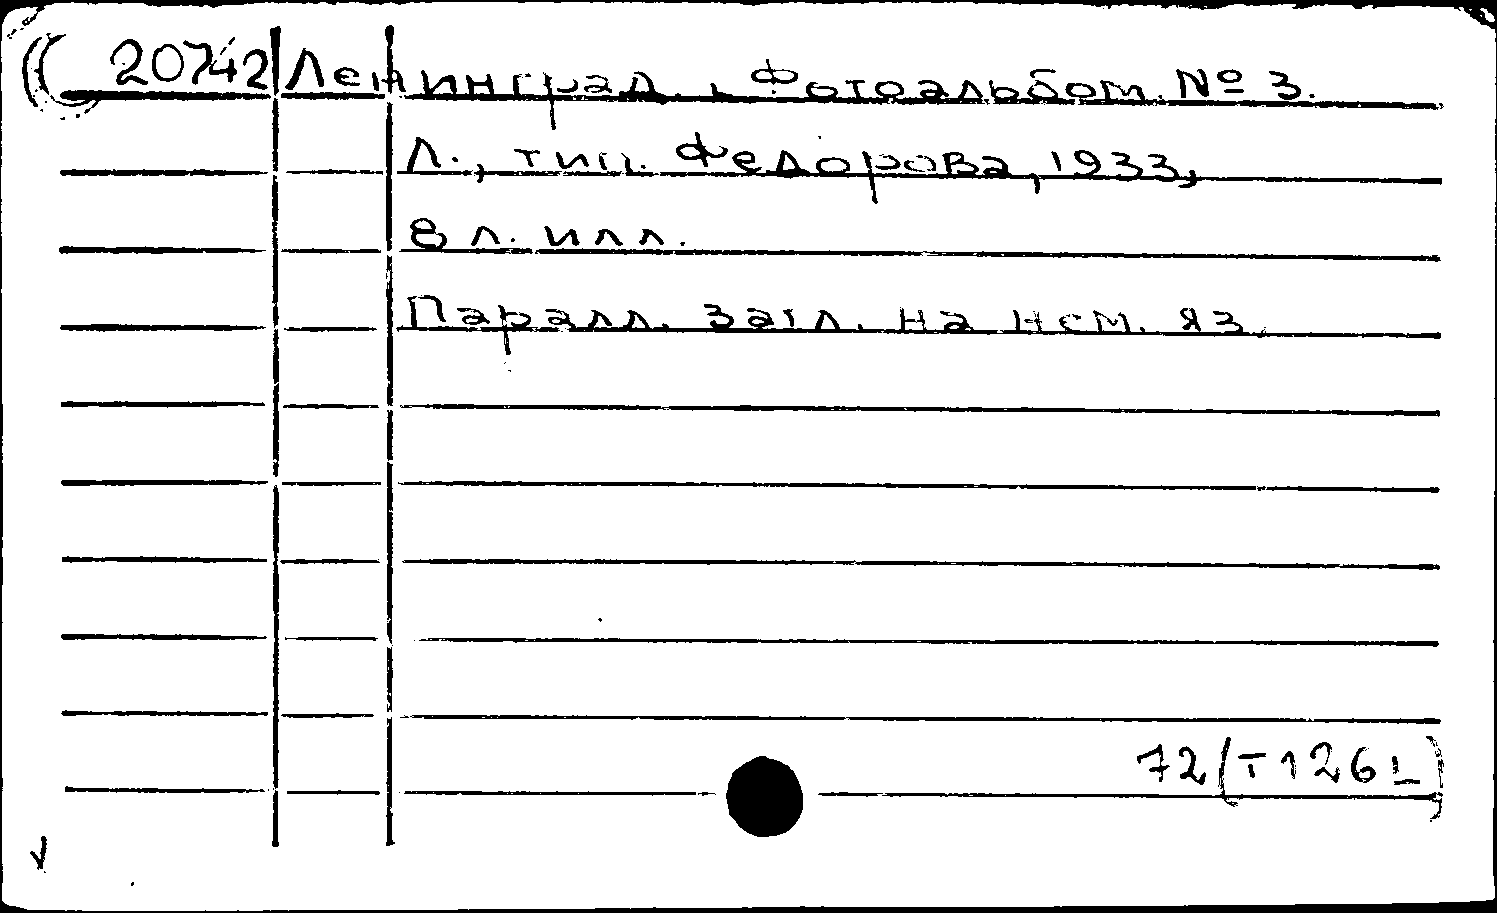 20742 Ленинград. Фотоальбом. № 3.
Л., тип. Федорова, 1933,
8 л. илл.
Паралл. загл. на нем. яз.
72(Т126L)